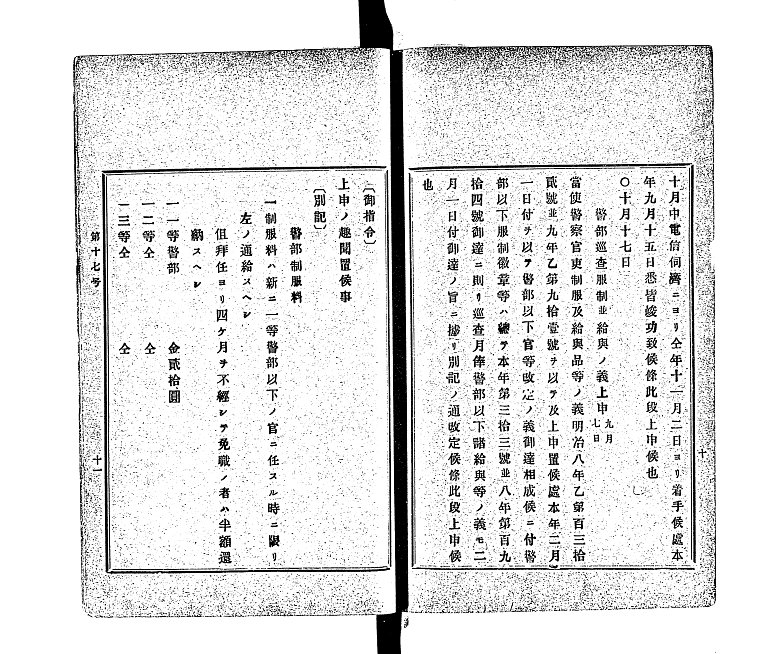 十月中電信伺濟ニヨリ仝年十一月二日ヨリ着手候處本
年九月十五日悉皆竣功致候條此段上申候也
〇十月十七日
警部巡査服制並給與ノ義上申九月七日
當使警察官吏制服及給與品等ノ義明治八年乙第百三拾
貳號並九年乙第九拾壹號ヲ以テ及上申置候處本年二月
一日付ヲ以テ警部以下官等改定ノ義御達相成候ニ付警
部以下服制徽章等ハ總テ本年第三拾三號並八年第百九
拾四號御達ニ則リ巡査月俸警部以下諸給與等ノ義モ二
月一日付御達ノ旨ニ據リ別記ノ通改定候條此段上申候
也
十
〔御指令〕
上申ノ趣聞置候事
〔別記〕
警部制服料
一制服料ハ新ニ一等警部以下ノ官ニ任スル時ニ限リ
左ノ通給スヘシ
但拜任ヨリ四ケ月ヲ不經シテ免職ノ者ハ半額還
納スヘシ
一一等警部 金貳拾圓
一二等仝 仝
一三等仝 仝
第十七号
十一